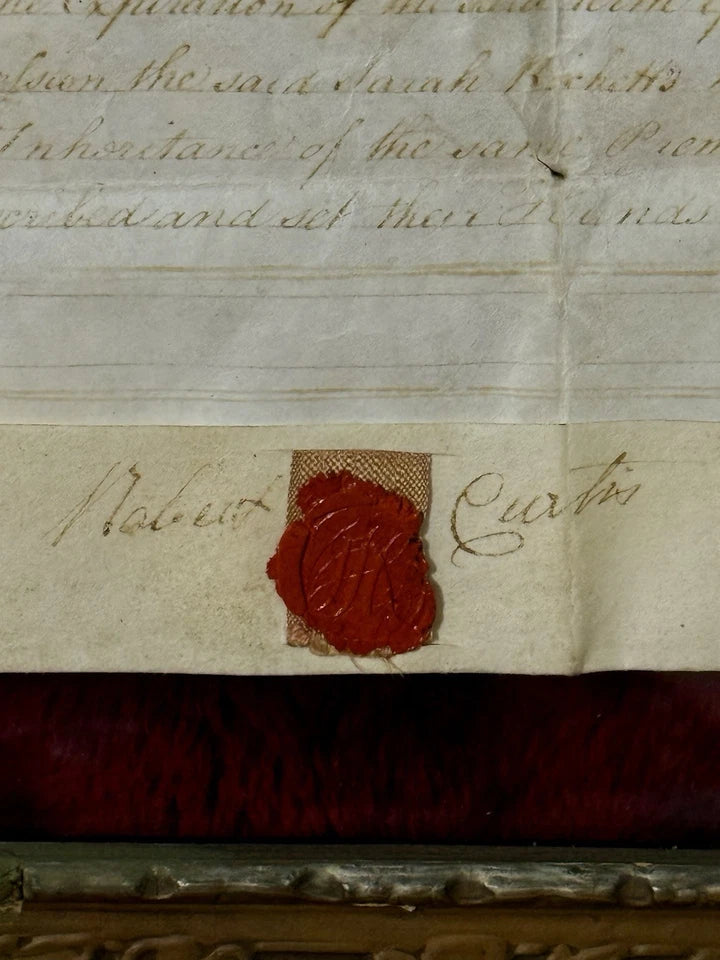 Expiration of the said term
the said Sarah Ricketts
Inheritance of the same Prem
cribed and set their Hands
Robert Curtis